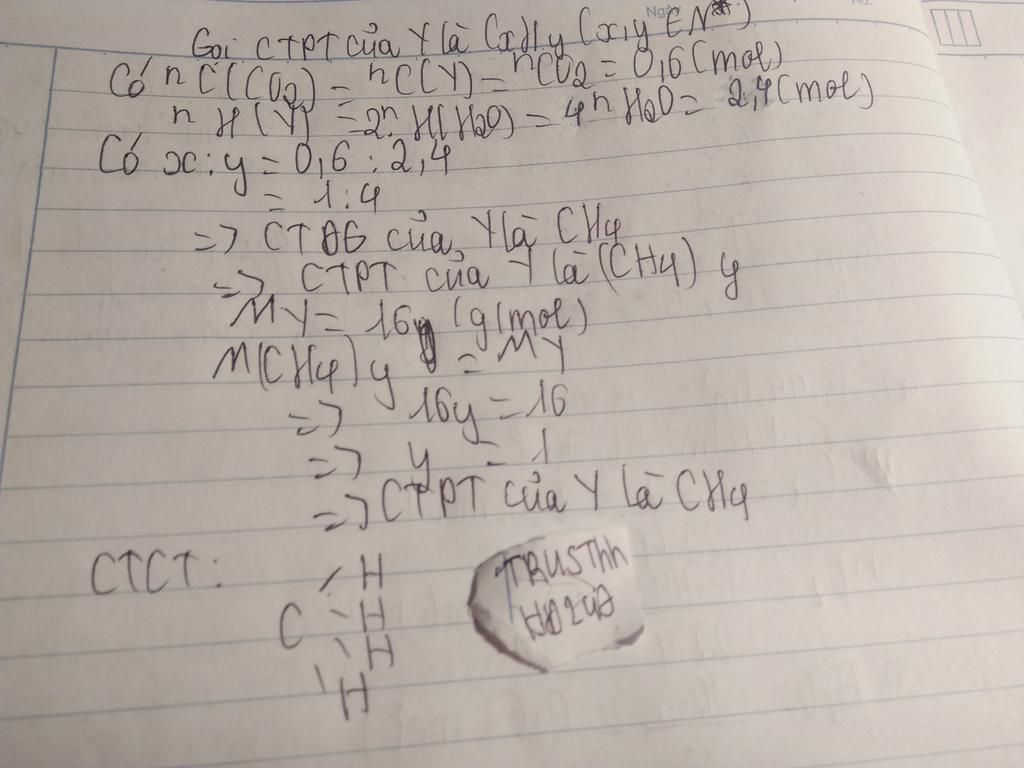 Gọi CTPT của Y là CxHy (x,y ∈ N*)
Có nC(CO2) = nC(Y) = nCO2 = 0,6 (mol)
nH(Y) = 2nH(H2O) = 4nH2O = 2,4 (mol)
Có x:y = 0,6 : 2,4
= 1:4
=> CTĐG của Y là CH4
=> CTPT của Y là (CH4)y
MY = 16 (g/mol)
M(CH4)y = MY
=> 16y = 16
=> y = 1
=> CTPT của Y là CH4
CTCT: H
C H
H
H
TRUSThh